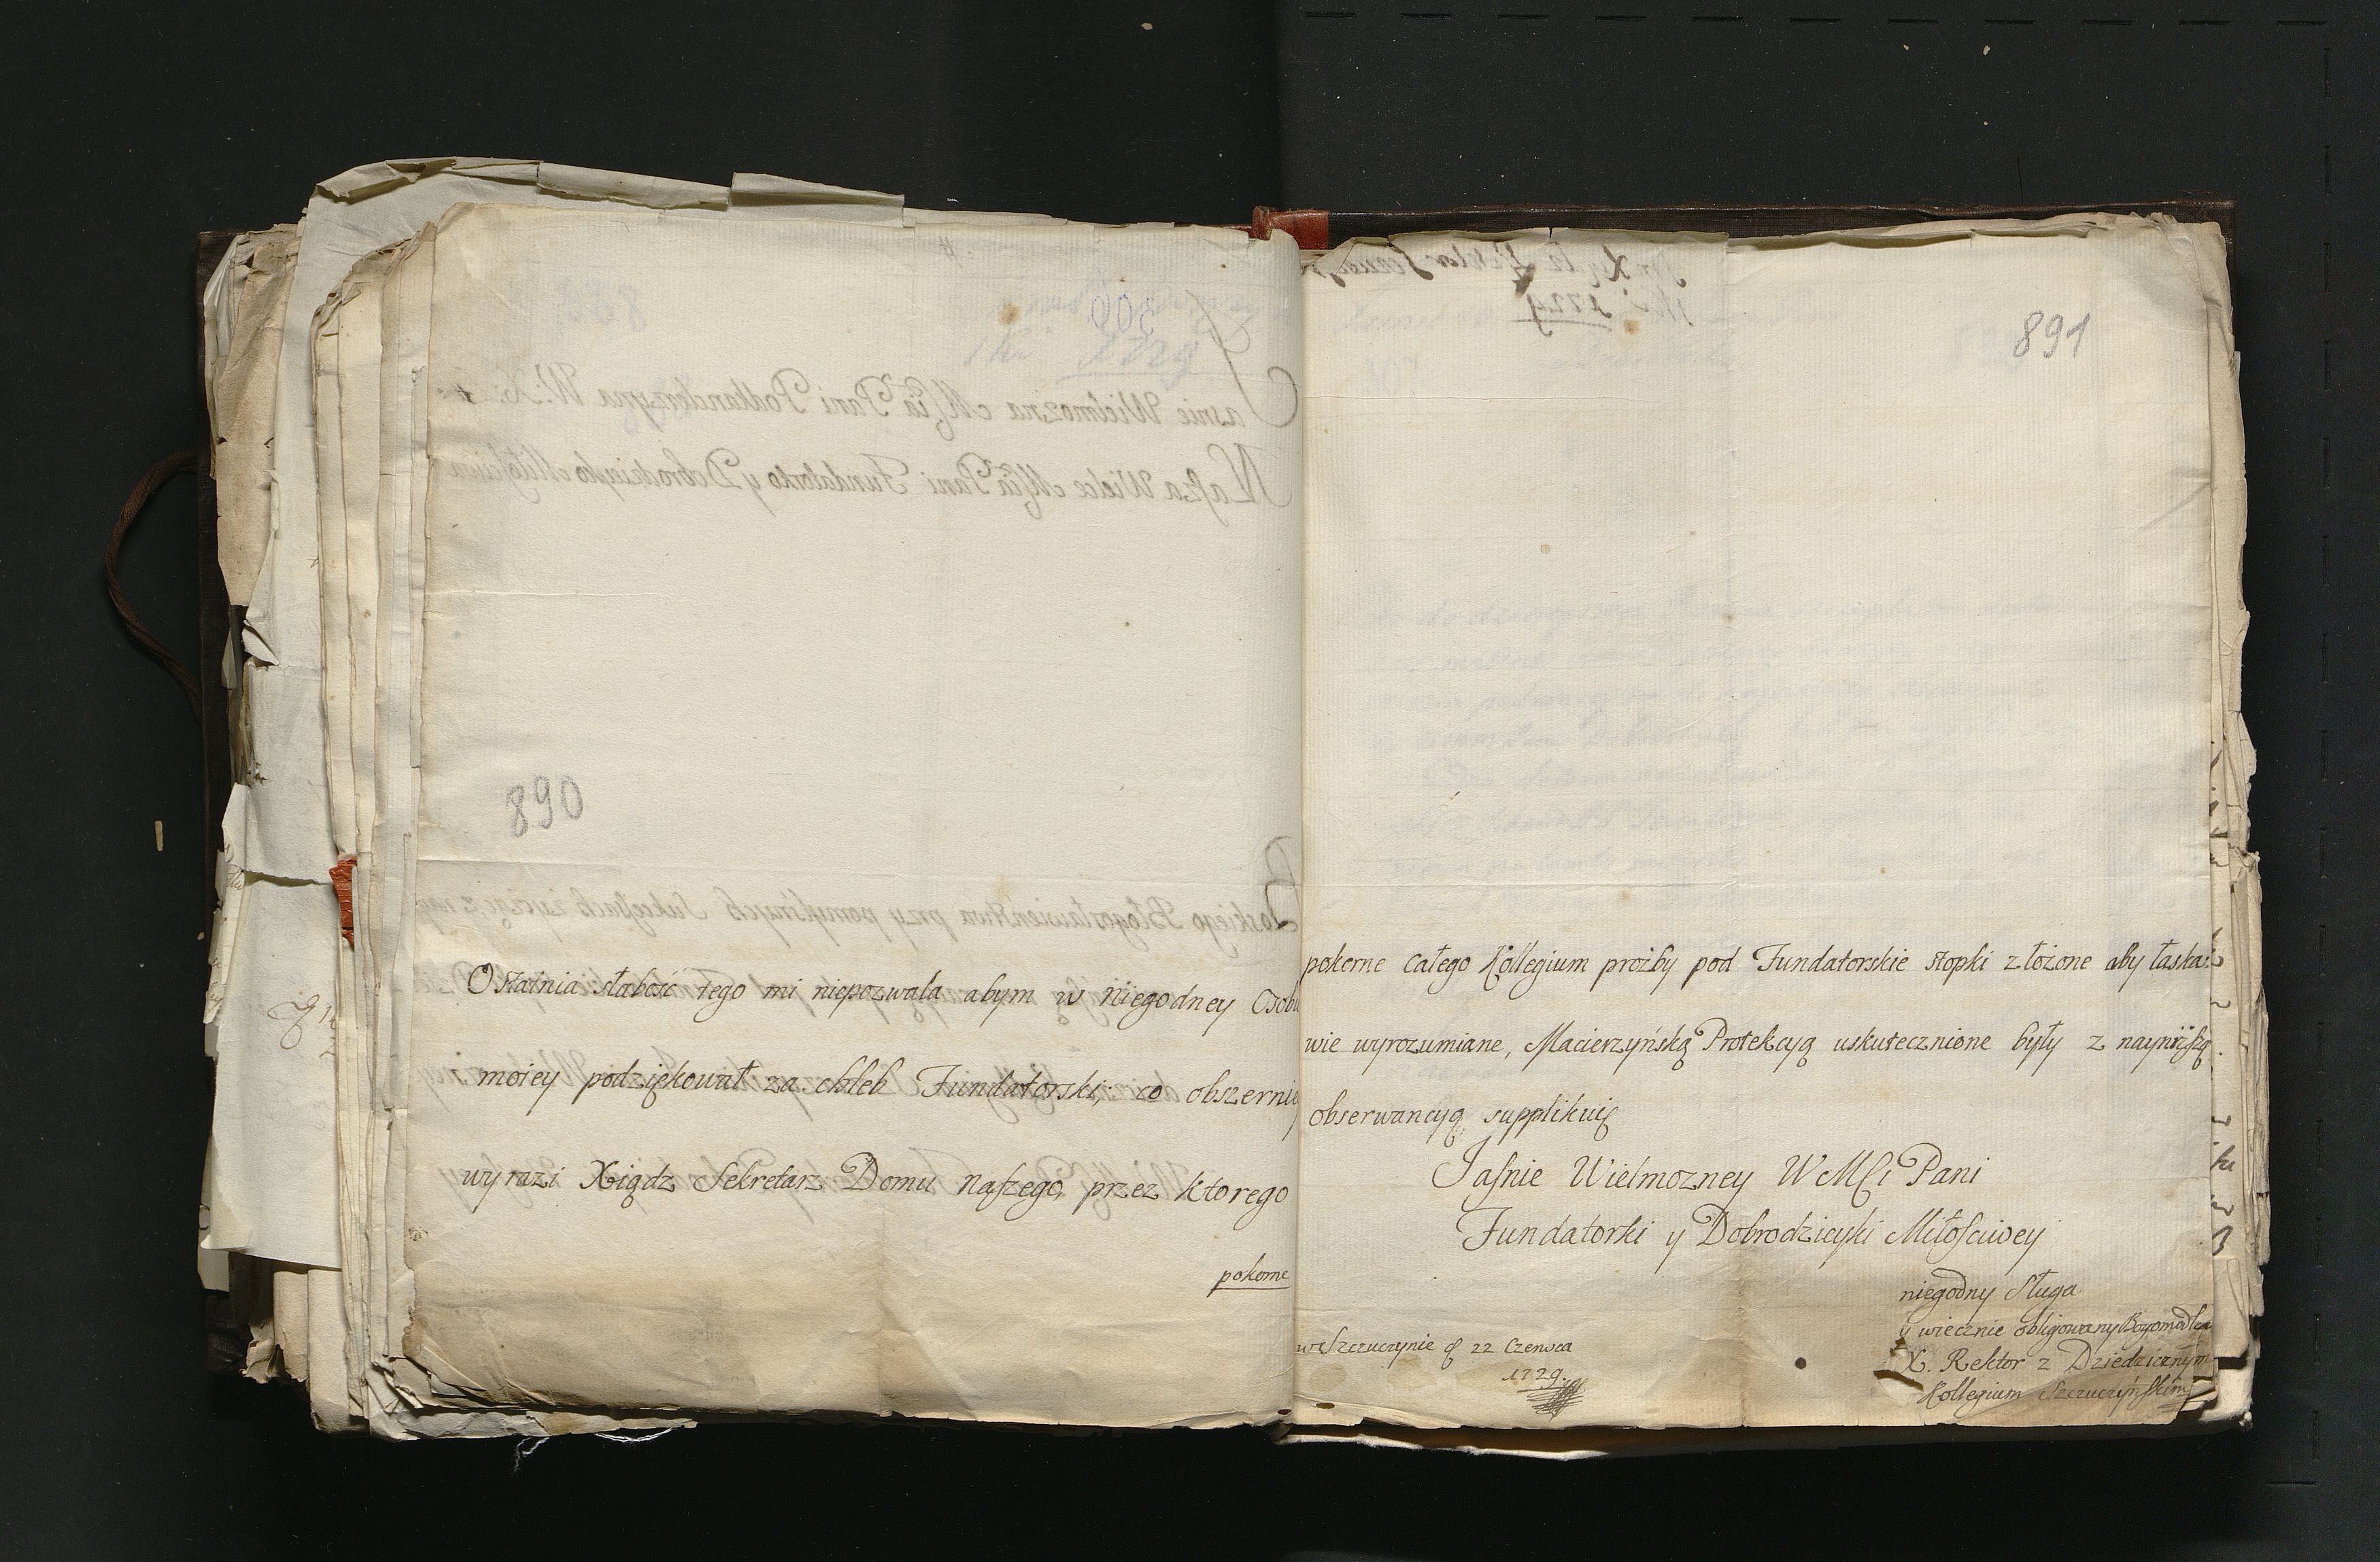 890
Ostatnia słabość tego mi niepozwala abym w niegodney Osobie
moiey podziękował za chleb Fundatorski, co obszerniey
wyrazi Xiądz Sekretarz Domu naszego, przez ktorego
pokorne
891
pokorne całego Kollegium proźby pod Fundatorskie stopki złożone aby łaska:
wie wyrozumiane, Macierzyńską Protekcyą uskutecznione były z nayniższą
obserwancyą supplikuię
Jaśnie Wielmozney WMSi Pani
Fundatorki y Dobrodzieyki Miłościwey
niegodny Sługa
y wiecznie obligowany Bogomodlca
X. Rektor z Dziedzicznym
Kollegium Szczuczyńskim
w Szczuczynie d 22 Czerwca
1729.